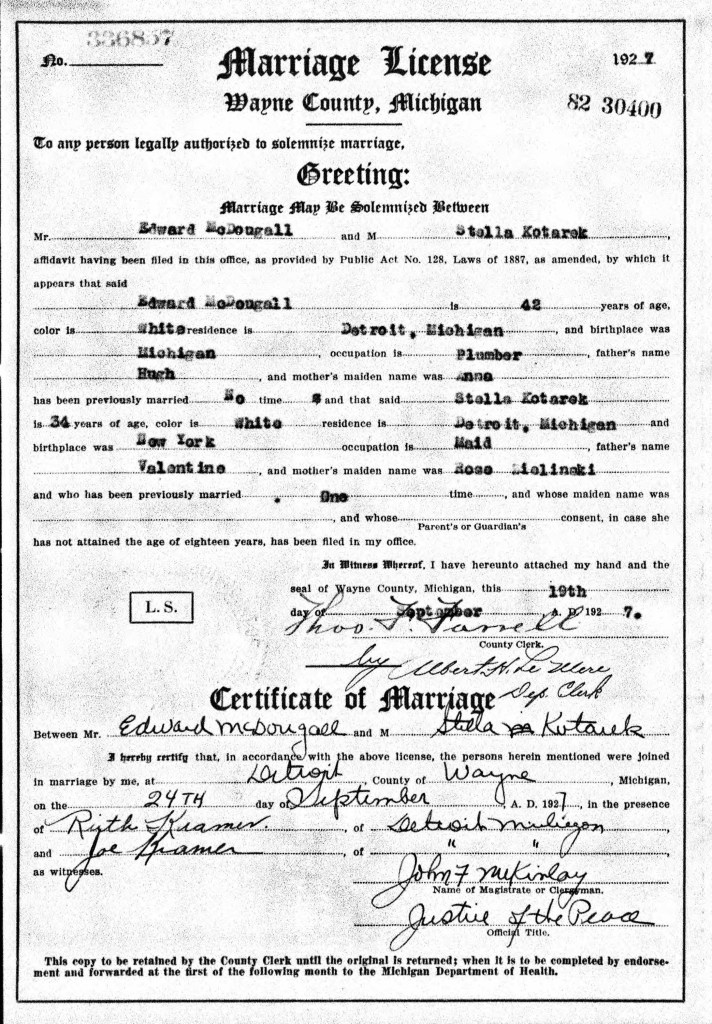 No. 336857
Marriage License
1927
Wayne County, Michigan
82 30400
To any person legally authorized to solemnize marriage,
Greeting:
Marriage May Be Solemnized Between
Mr. Edward McDougall and M Stella Kotarek,
affidavit having been filed in this office, as provided by Public Act No. 128, Laws of 1887, as amended, by which it
appears that said
Edward McDougall is 42 years of age,
color is White residence is Detroit, Michigan, and birthplace was
Michigan, occupation is Plumber, father's name
Hugh, and mother's maiden name was Anna
has been previously married No time s and that said Stella Kotarek
is 34 years of age, color is White residence is Detroit, Michigan and
birthplace was New York occupation is Maid, father's name
Valentine, and mother's maiden name was Rose Zielinski
and who has been previously married . One time, and whose maiden name was
, and whose consent, in case she
Parent's or Guardian's
has not attained the age of eighteen years, has been filed in my office.
In Witness Whereof, I have hereunto attached my hand and the
seal of Wayne County, Michigan, this 19th
L. S.
day of September A. D. 1927.
Thos. F. Farrell
County Clerk.
by Albert H. Le
Dep. Clerk
Certificate of Marriage
Between Mr. Edward McDougall and M Stella Kotarek
I hereby certify that, in accordance with the above license, the persons herein mentioned were joined
in marriage by me, at Detroit, County of Wayne, Michigan,
on the 24TH day of September A. D. 1927, in the presence
of Ruth Kramer, of Detroit Michigan
and Joe Kramer, of " "
as witnesses.
John F McKinlay
Name of Magistrate or Clergyman.
Justice of the Peace
Official Title.
This copy to be retained by the County Clerk until the original is returned; when it is to be completed by endorse-
ment and forwarded at the first of the following month to the Michigan Department of Health.